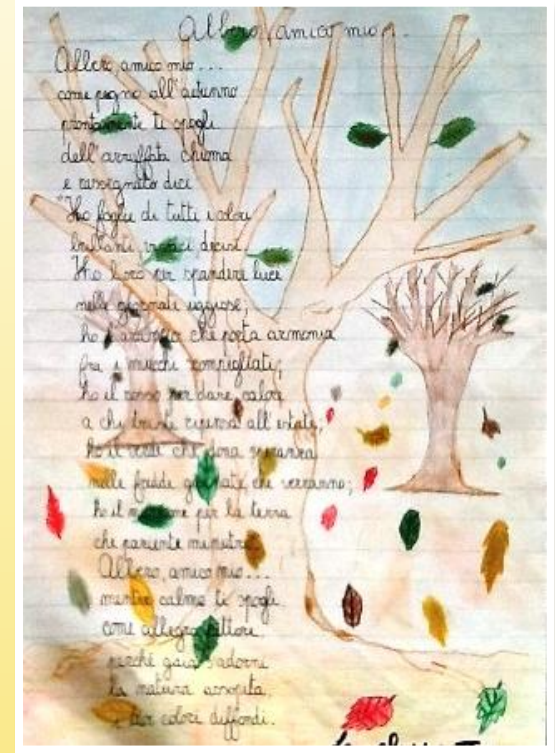 Albero, amico mio...
Albero, amico mio...
come pegno all'autunno
prontamente ti spogli
dell'arruffata chioma
e rassegnato dici
"Ho foglie di tutti i colori
brillanti, vivaci, decisi.
Ho l'oro per spandere luce
nelle giornate uggiose;
ho l'arancio che porta armonia
fra i mucchi scompigliati;
ho il rosso per dare calore
a chi triste ripensa all'estate;
ho il verde che dona speranza
nelle fredde giornate che verranno;
ho il marrone per la terra
che paziente
Albero, amico mio...
mentre calmo ti spogli,
come allegro pittore,
perché gaia s'adorni
la natura assopita,
i tuoi colori diffondi.